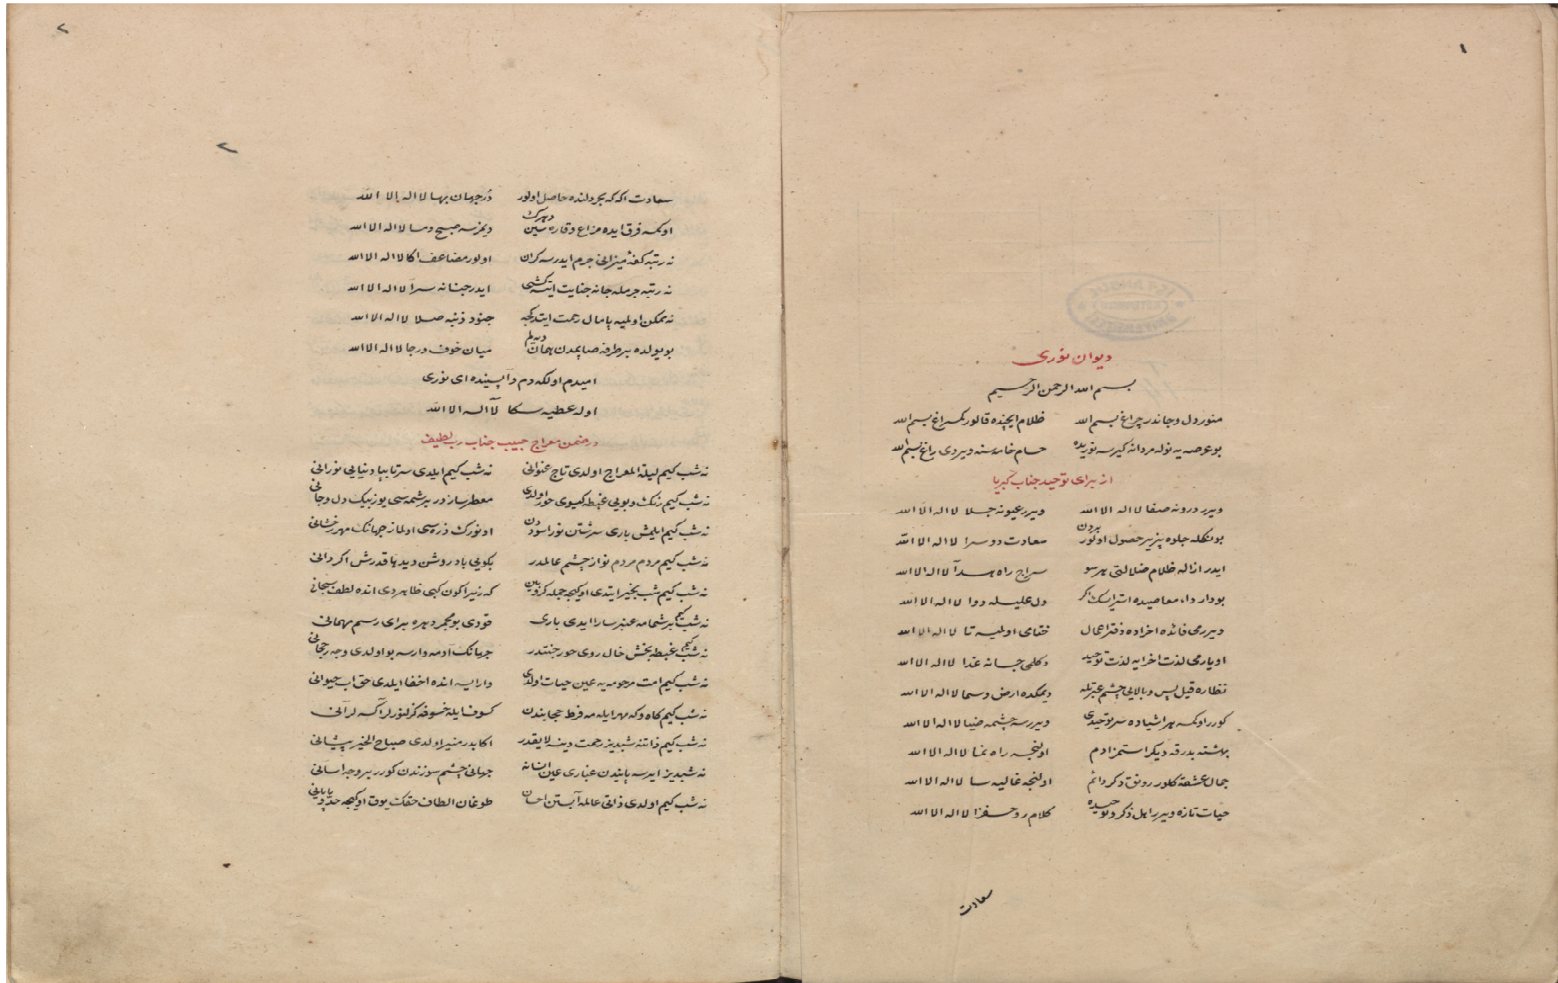 ١
ديوان نورى
بسم الله الرحمن الرحيم
منور دل و جاندر چراغ بسم الله ظلام ايچنده قالور بسم الله
بو عرصه يه نوله مردانه كيرسه نوريده حسام خامه سنه ويردى ياغ بسم الله
از براى توحيد جناب كبريا
ويرر درونه صفا لا اله الا الله ويرر عيونه جلا لا اله الا الله
بونكله جلوه پذير حصول اولور بردن سعادت دوسرا لا اله الا الله
ايدر ازاله ظلام ضلالتى هر سو سراج راه هدا لا اله الا الله
بودار داء معاصيده دل عليله دوا لا اله الا الله
ويررمى فائده اخراده دفتر اعمال ختامى اولميه تا لا اله الا الله
اويارمى لذت اخرايه لذت توحيد دكلمى جانه غدا لا اله الا الله
نظاره قيل پس و بالايى چشم عبرتله ديمكده ارض و سما لا اله الا الله
كورر اوكمسه هر اشياده سر توحيدى ويررسه چشمه ضيا لا اله الا الله
بهشته بدرقه ديكر استمز ادم اولنجه راه نما لا اله الا الله
جمال عشقه كلور رونق دكردانم اولنجه غاليه سا لا اله الا الله
حيات تازه ويرر اهل ذكر و توحيده كلام روحفزا لا اله الا الله
سعادت
٢
٢
سعادت اكه كه بحر دلنده حاصل اولور در جهان بها لا اله الا الله
اوكمسه فرق ايده مزاغ و قاره ديمزسه صبح و مسا لا اله الا الله
نه رتبه كفه ميزانى جرم ايدرسه كران اولور مضاعف اكا لا اله الا الله
نه رتبه جرمله جانه جنايت ايتسه كشى ايدر جنانه سزا لا اله الا الله
نه ممكن اولميه پامال رحمت ايتدكجه جنود ذنبه صلا لا اله الا الله
بو يولده بر طرفه صاپمدن همان ميان خوف و رجا لا اله الا الله
اميدم اولكه دم واپسينده اى نورى
اوله عطيه سكا لا اله الا الله
در ضمن معراج حبيب جناب رب لطيف
نه شب كيم ليلة المعراج اولدى تاج عنوانى نه شب كيم ايلدى سرتا بپا دنيايى نورانى
نه شب كيم رنك و بويى غبطه كيسوى حور اولدى معطر ساز در بر شمه سى يوز بيك دل و جانى
نه شب كيم ايلمش بارى سرشتن نور اسوددن او نورك ذره سى اولماز جهانك مهر رخشانى
نه شب كيم مردم مردم نواز چشم عالمدر
نه شب كيم شب بخير ايتدى او كيجه جمله كروبين كه زيرا كون كبى ظاهردى انده لطف سبحانى
نه شب كيم بر شمامه عنبر سارا ايدى بارى قودى بو مجمر دهره براى رسم مهمانى
نه شب كيم غبطه بخش خال روى حور جنتدر جهانك آدمه وارسه بو اولدى وجه رجحانى
نه شب كيم امت مرحومه يه عين حيات اولدى
نه شب كيم كاه و كه مهر ايله مه فرط حجابندن كسوف ايله خسوفه كزلنورلر
نه شب كيم اكا بدر منير اولدى صباح الخير پيشانى
نه شبديز ايدسه پايندن غبارى عين انسانه
نه شب كيم اولدى ذاتى عالمه آبستن احسان طوغان الطاف حقك يوق او كيجه حد و پايانى